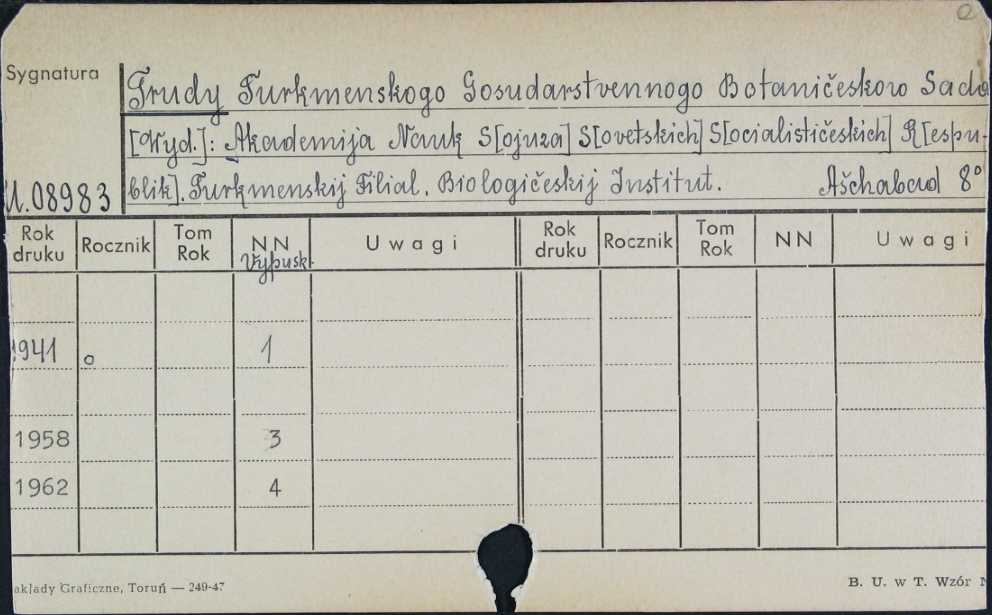 Sygnatura
Trudy Turkmenskogo Gosudarstvennogo Botaničeskovo Sada
[Wyd.]: Akademija Nauk S[ojuza] S[ovetskich] S[ocialističeskich] R[espu-
blik]. Turkmenskij Filial. Biologičeskij Institut. Ašchabad 8°
U.08983
Rok druku Rocznik Tom Rok NN Vypusk Uwagi Rok druku Rocznik Tom Rok NN Uwagi
1941 o 1
1958 3
1962 4
akłady Graficzne, Toruń — 249-47 B. U. w T. Wzór